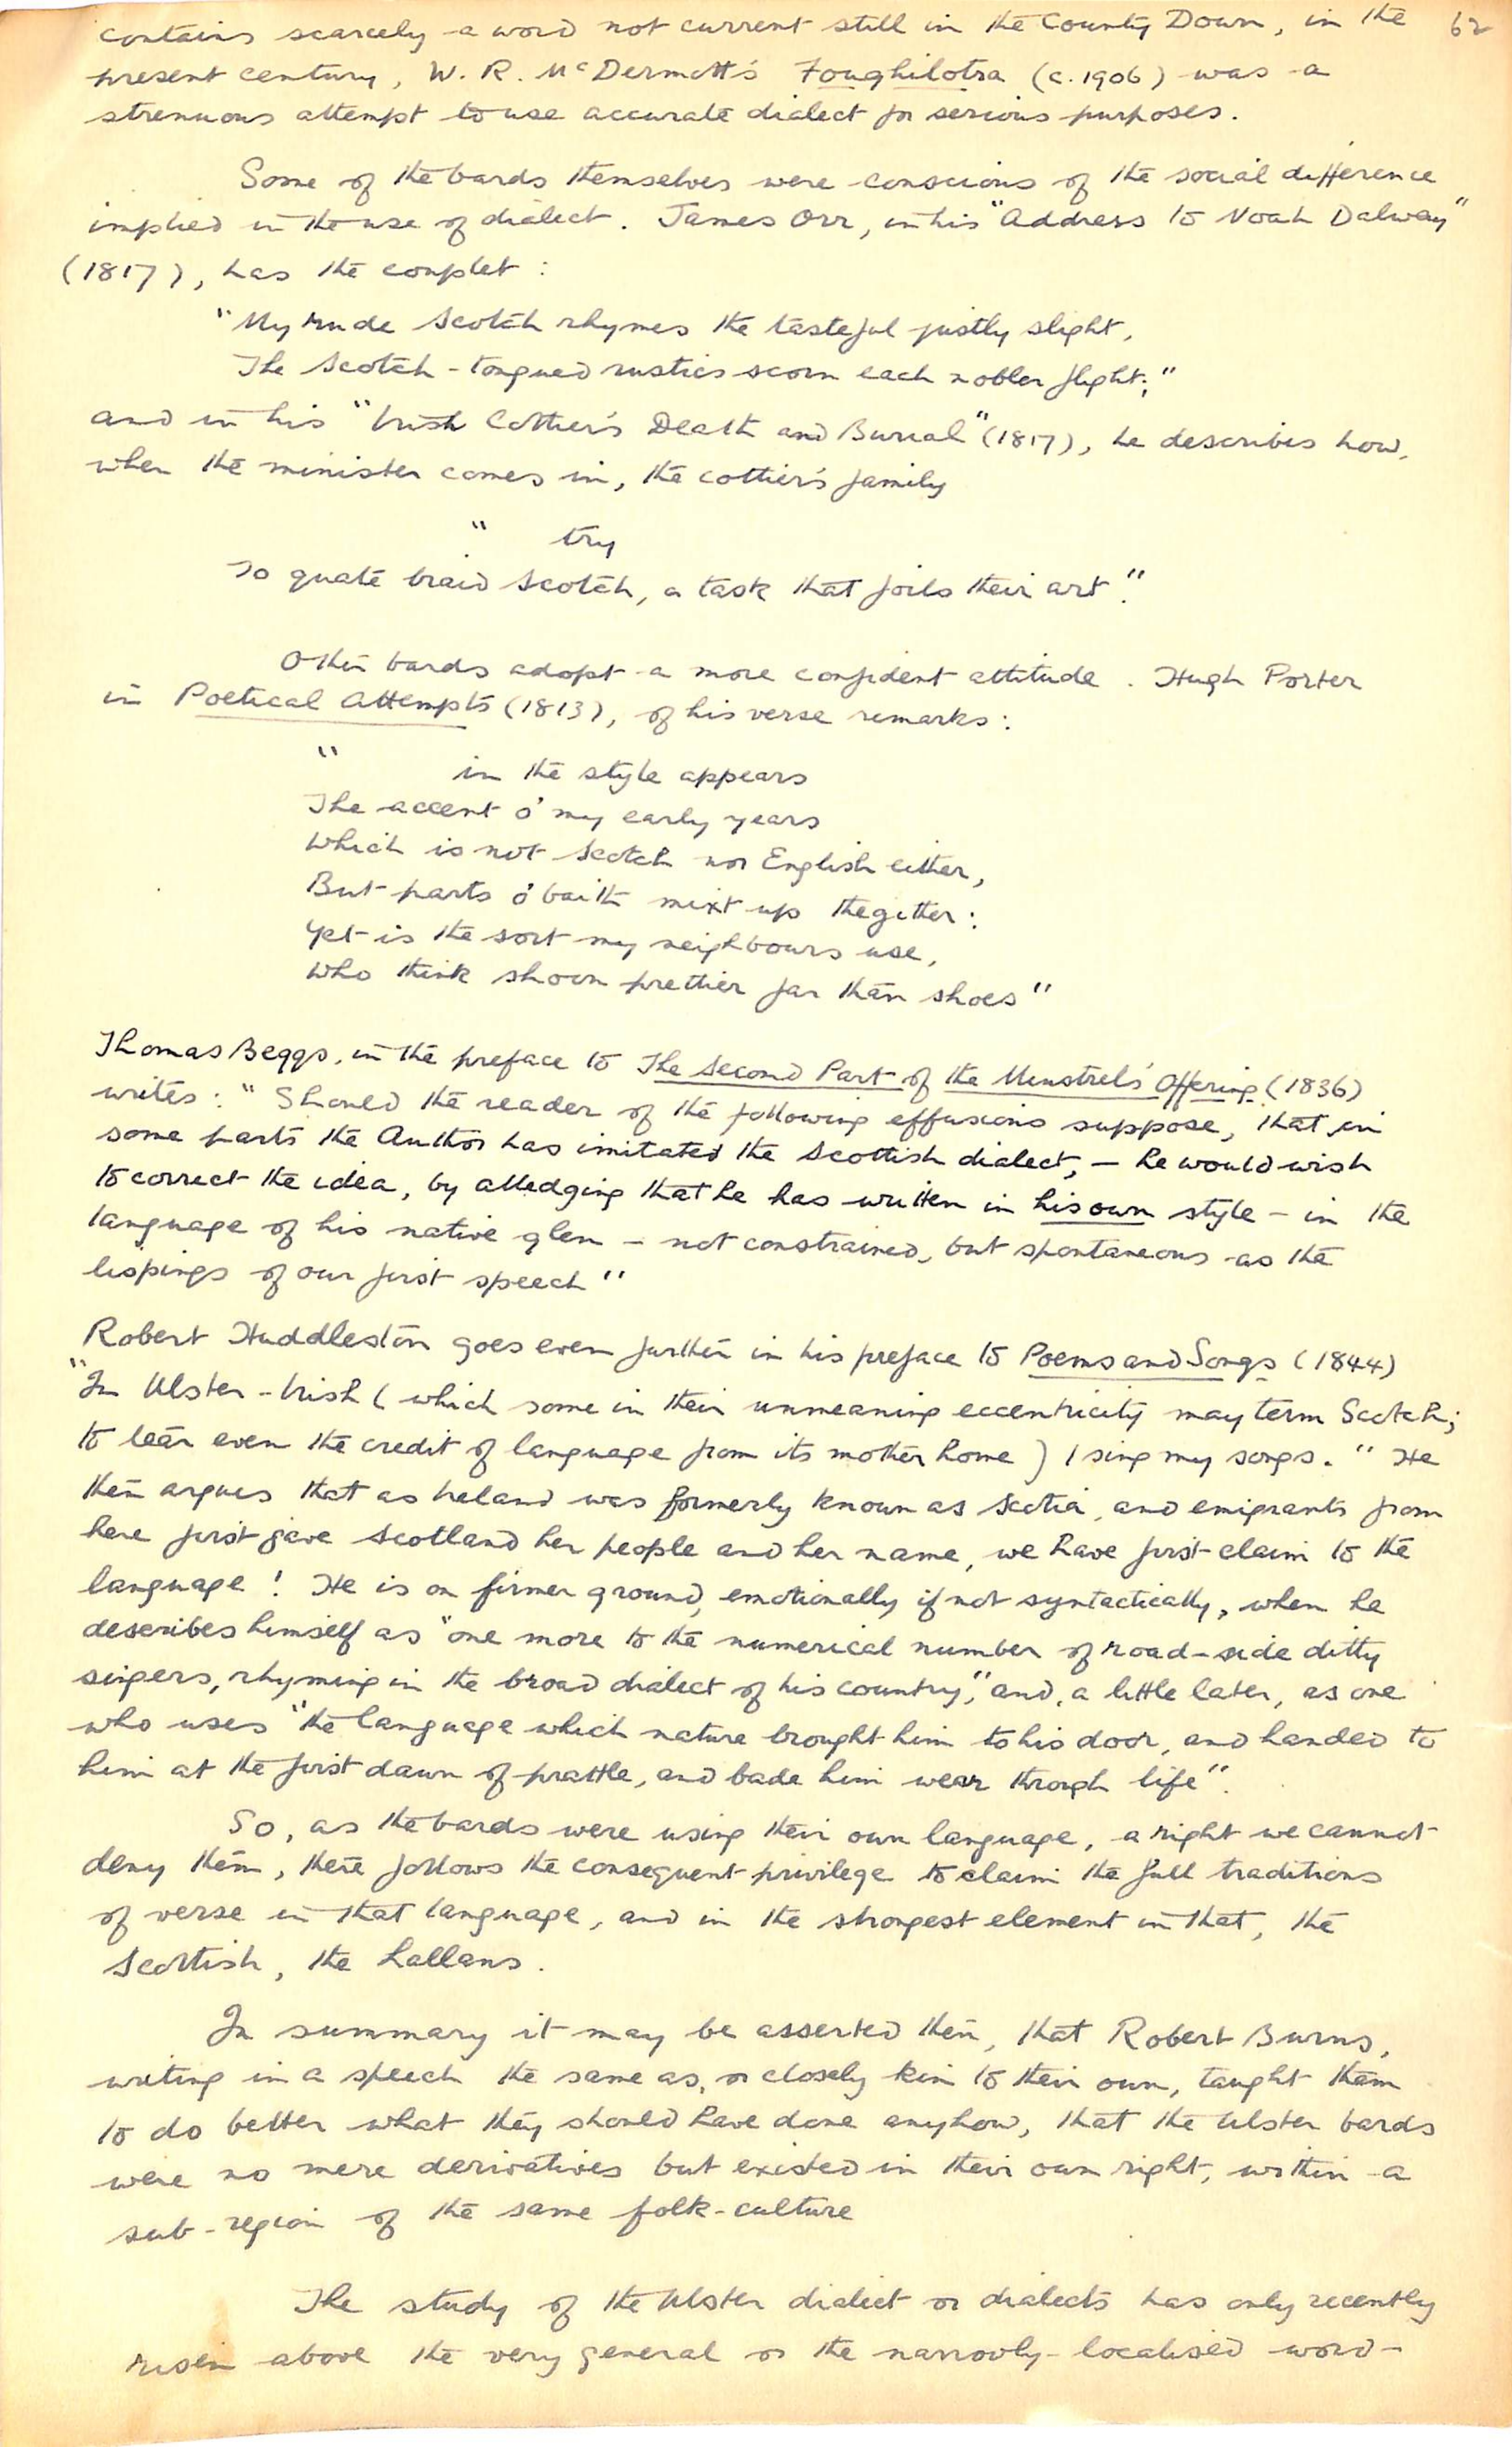 contains scarcely a word not current still in the County Down, in the 62
present century, W. R. McDermott's Foughilotra (c. 1906) was a
strenuous attempt to use accurate dialect for serious purposes.
Some of the bards themselves were conscious of the social difference
implied in the use of dialect. James Orr, in his "Address to Noah Dalway"
(1817), has the couplet:
"My rude Scotch rhymes the tasteful justly slight,
The Scotch-tongued rustics scorn each nobler flight;"
and in his "Irish Cottier's Death and Burial" (1817), he describes how,
when the minister comes in, the cottier's family
" try
To quate braid Scotch, a task that foils their art".
Other bards adopt a more confident attitude. Hugh Porter
in Poetical Attempts (1813), of his verse remarks:
" in the style appears
The accent o' my early years
Which is not Scotch nor English either,
But parts o' baith mixt up thegither:
Yet is the sort my neighbours use,
Who think shoon prettier far than shoes"
Thomas Beggs, in the preface to The Second Part of the Minstrel's Offering (1836)
writes: "Should the reader of the following effusions suppose, that in
some parts the Author has imitated the Scottish dialect, – he would wish
to correct the idea, by alledging that he has written in his own style – in the
language of his native glen – not constrained, but spontaneous as the
lispings of our first speech"
Robert Huddleston goes even further in his preface to Poems and Songs (1844)
"In Ulster-Irish (which some in their unmeaning eccentricity may term Scotch;
to lear even the credit of language from its mother home) I sing my songs." He
then argues that as Ireland was formerly known as Scotia, and emigrants from
here first gave Scotland her people and her name, we have first claim to the
language! He is on firmer ground, emotionally if not syntactically, when he
describes himself as "one more to the numerical number of road-side ditty
singers, rhyming in the broad dialect of his country," and, a little later, as one
who uses "the language which nature brought him to his door, and handed to
him at the first dawn of prattle, and bade him wear through life".
So, as the bards were using their own language, a right we cannot
deny them, there follows the consequent privilege to claim the full traditions
of verse in that language, and in the strongest element in that, the
Scottish, the Lallans.
In summary it may be asserted then, that Robert Burns,
writing in a speech the same as, or closely kin to their own, taught them
to do better what they should have done anyhow, that the Ulster bards
were no mere derivatives but existed in their own right, within a
sub-region of the same folk-culture
The study of the Ulster dialect or dialects has only recently
risen above the very general or the narrowly-localised word-